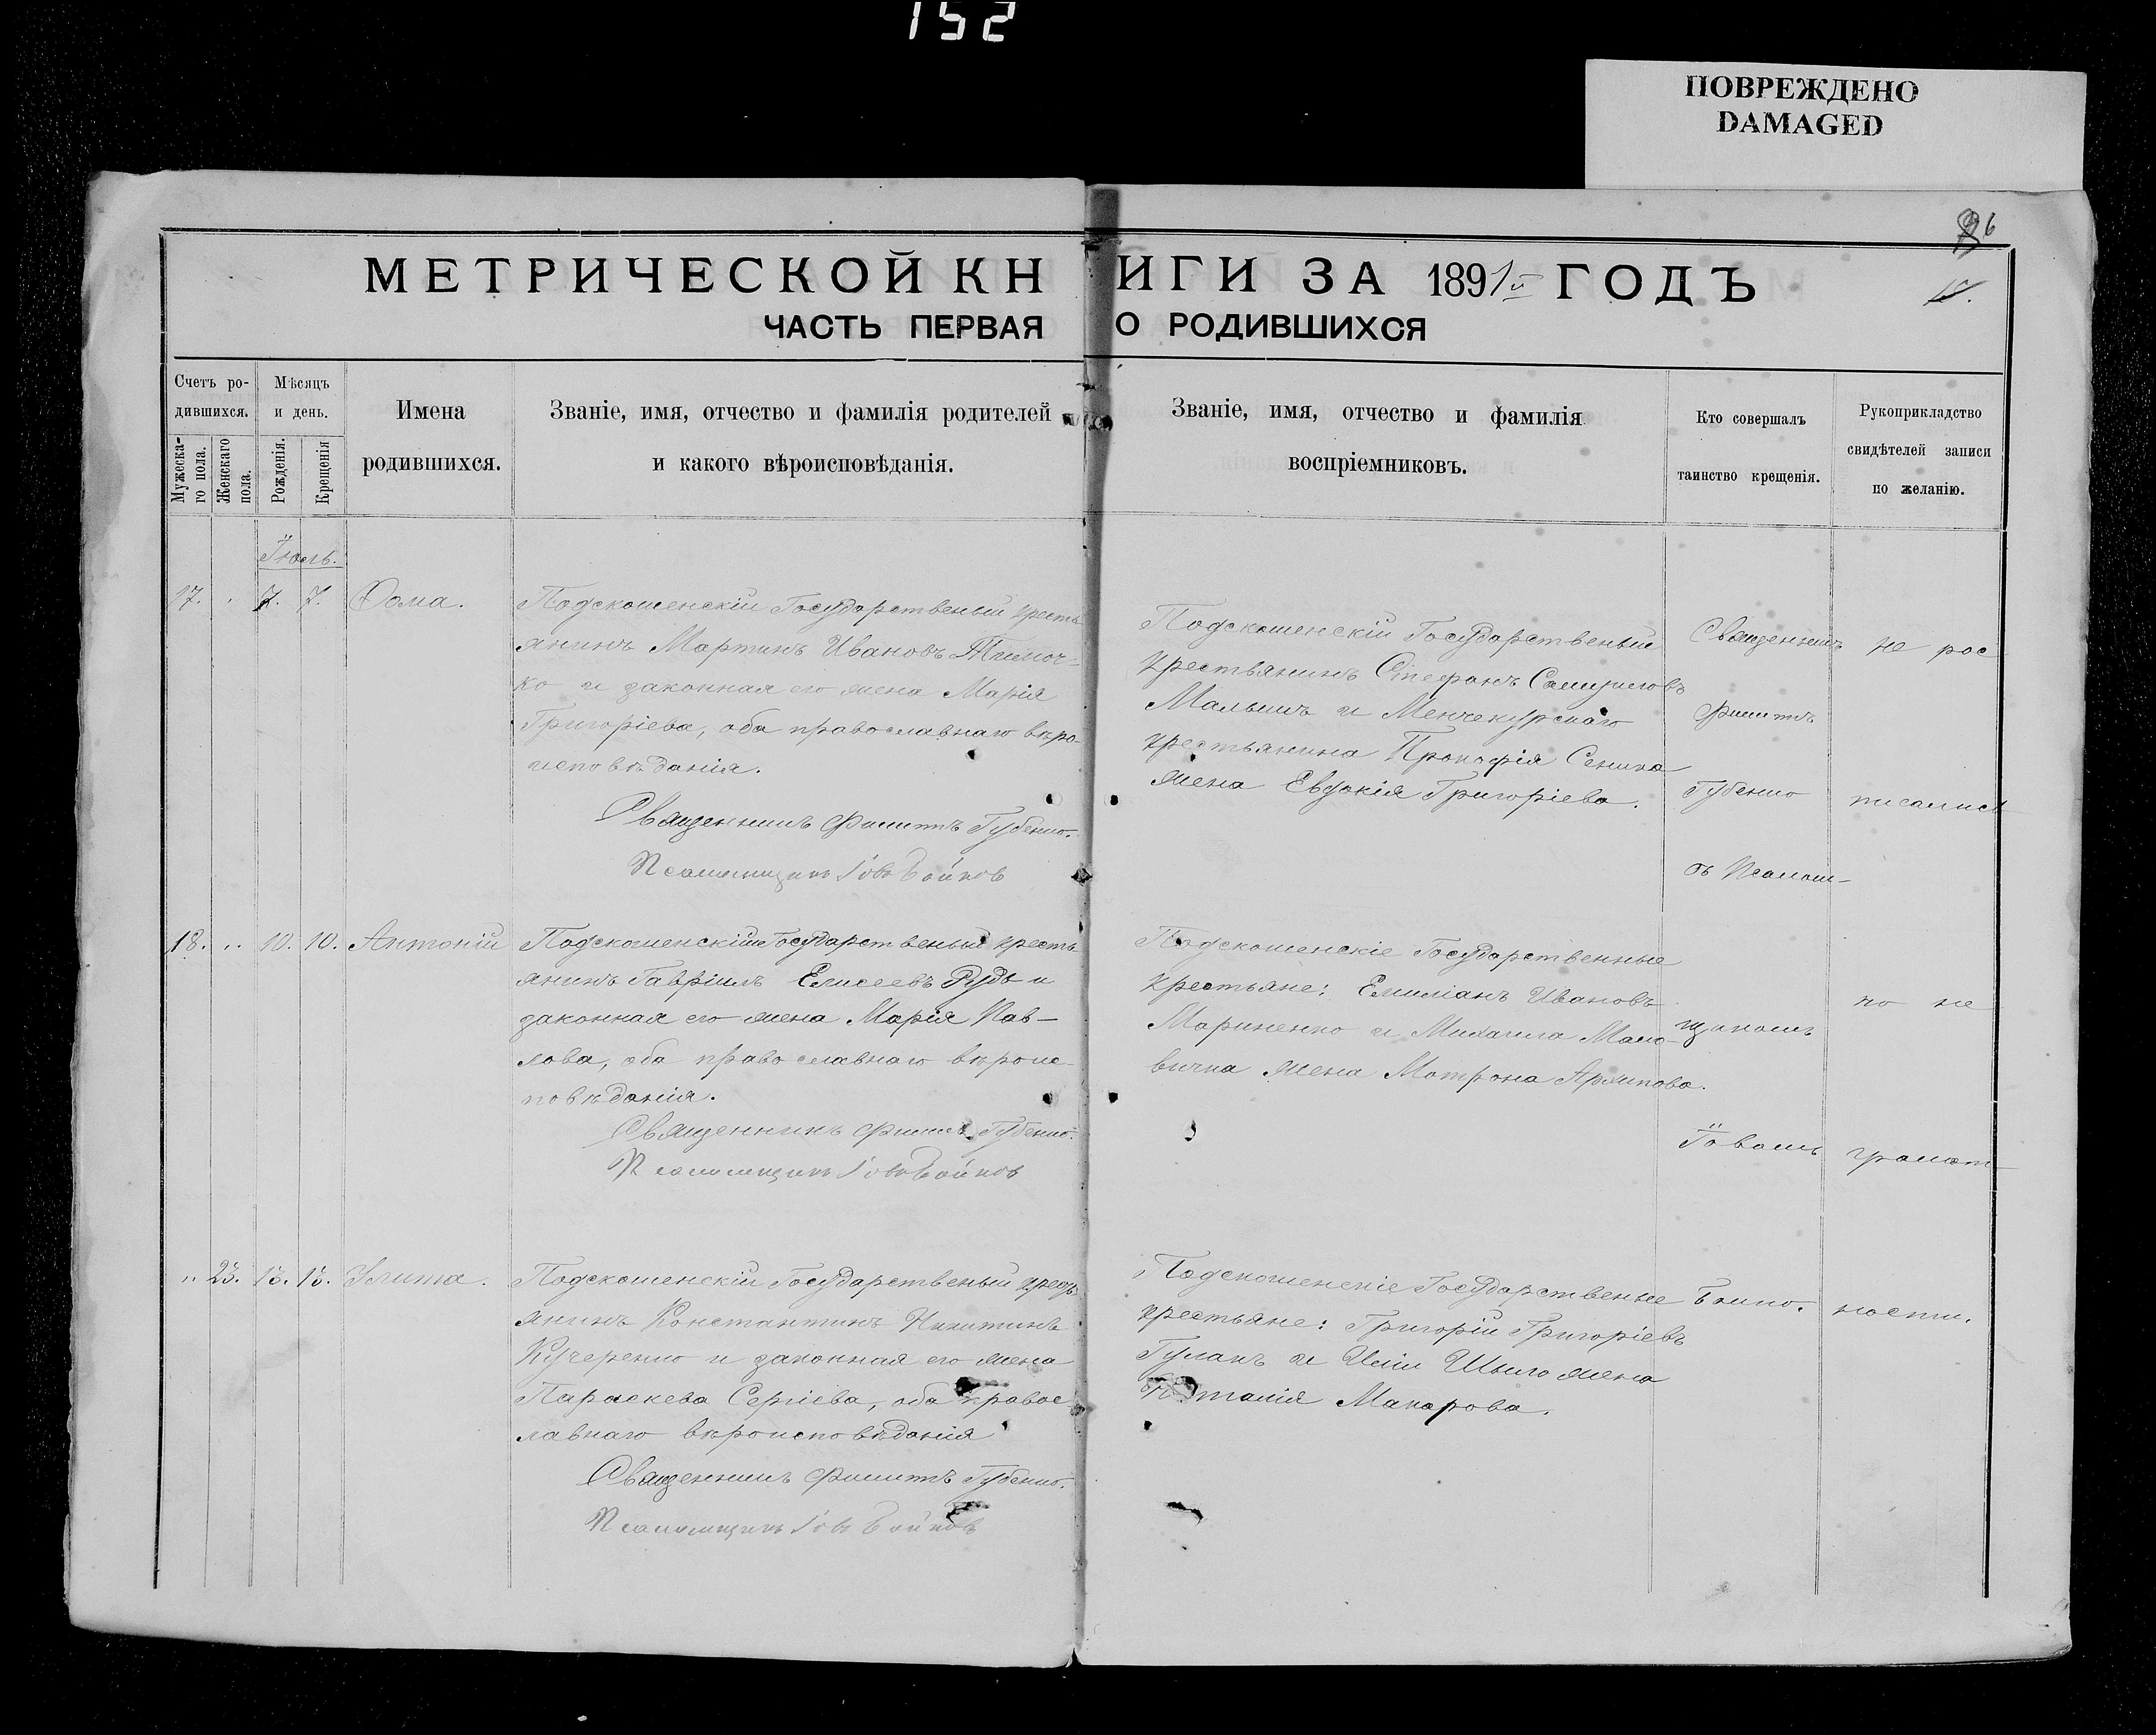 152
ПОВРЕЖДЕНО
DAMAGED
МЕТРИЧЕСКОЙ КНИГИ ЗА 1891й ГОДЪ
ЧАСТЬ ПЕРВАЯ О РОДИВШИХСЯ
Счетъ ро-
дившихся.
Мужеска-
го пола.
Женскаго
пола.
Мѣсяцъ
и день.
Рожденія.
Крещенія
Имена
родившихся.
Званіе, имя, отчество и фамилія родителей
и какого вѣроисповѣданія.
Званіе, имя, отчество и фамилія
воспріемниковъ.
Кто совершалъ
таинство крещенія.
Рукоприкладство
свидѣтелей записи
по желанію.
Іюль.
17. 7. 7. Ѳома.
Подскошенскій Государственый кресть
янинъ Мартинъ Ивановъ
ко и законная его жена Марія
Григоріева, оба православнаго вѣро-
исповѣданія.
Священникъ Филиппъ Губенко.
Псаломщикъ Іовъ Бойковъ
Подскошенскій Государственый
крестьянинъ Стефанъ
Малышъ и Менчекурскаго
крестьянина Прокофія Сенина
жена Евдокія Григоріева.
18. 10. 10. Антоній
Подскошенскій Государственый кресть
янинъ Гавріилъ Елисеевъ Рудь и
законная его жена Марія Пав-
лова, оба православнаго вѣроис-
повѣданія.
Священникъ Филиппъ Губенко.
Псаломщикъ Іовъ Бойковъ
Подскошенскіе Государственные
крестьяне: Емиліанъ Ивановъ
Мариненко и Михаила Мако-
вичка жена Матрона Архипова.
23. 15. 15. Улита.
Подскошенскій Государственый крест
янинъ Константинъ Никитинъ
Кучеренко и законная его жена
Параскева Сергіева, оба правос-
лавнаго вѣроисповѣданія
Священникъ Филиппъ Губенко.
Псаломщикъ Іовъ Бойковъ
Подскошенскіе Государственые
крестьяне: Григорій Григоріевъ
Гулакъ и Шыло жена
Наталія Макарова.
Священникъ
Филиппъ
Губенко
съ Псалом-
щикомъ
Іовомъ
Бойко.
не рас
писались
по не
грамот-
ности.